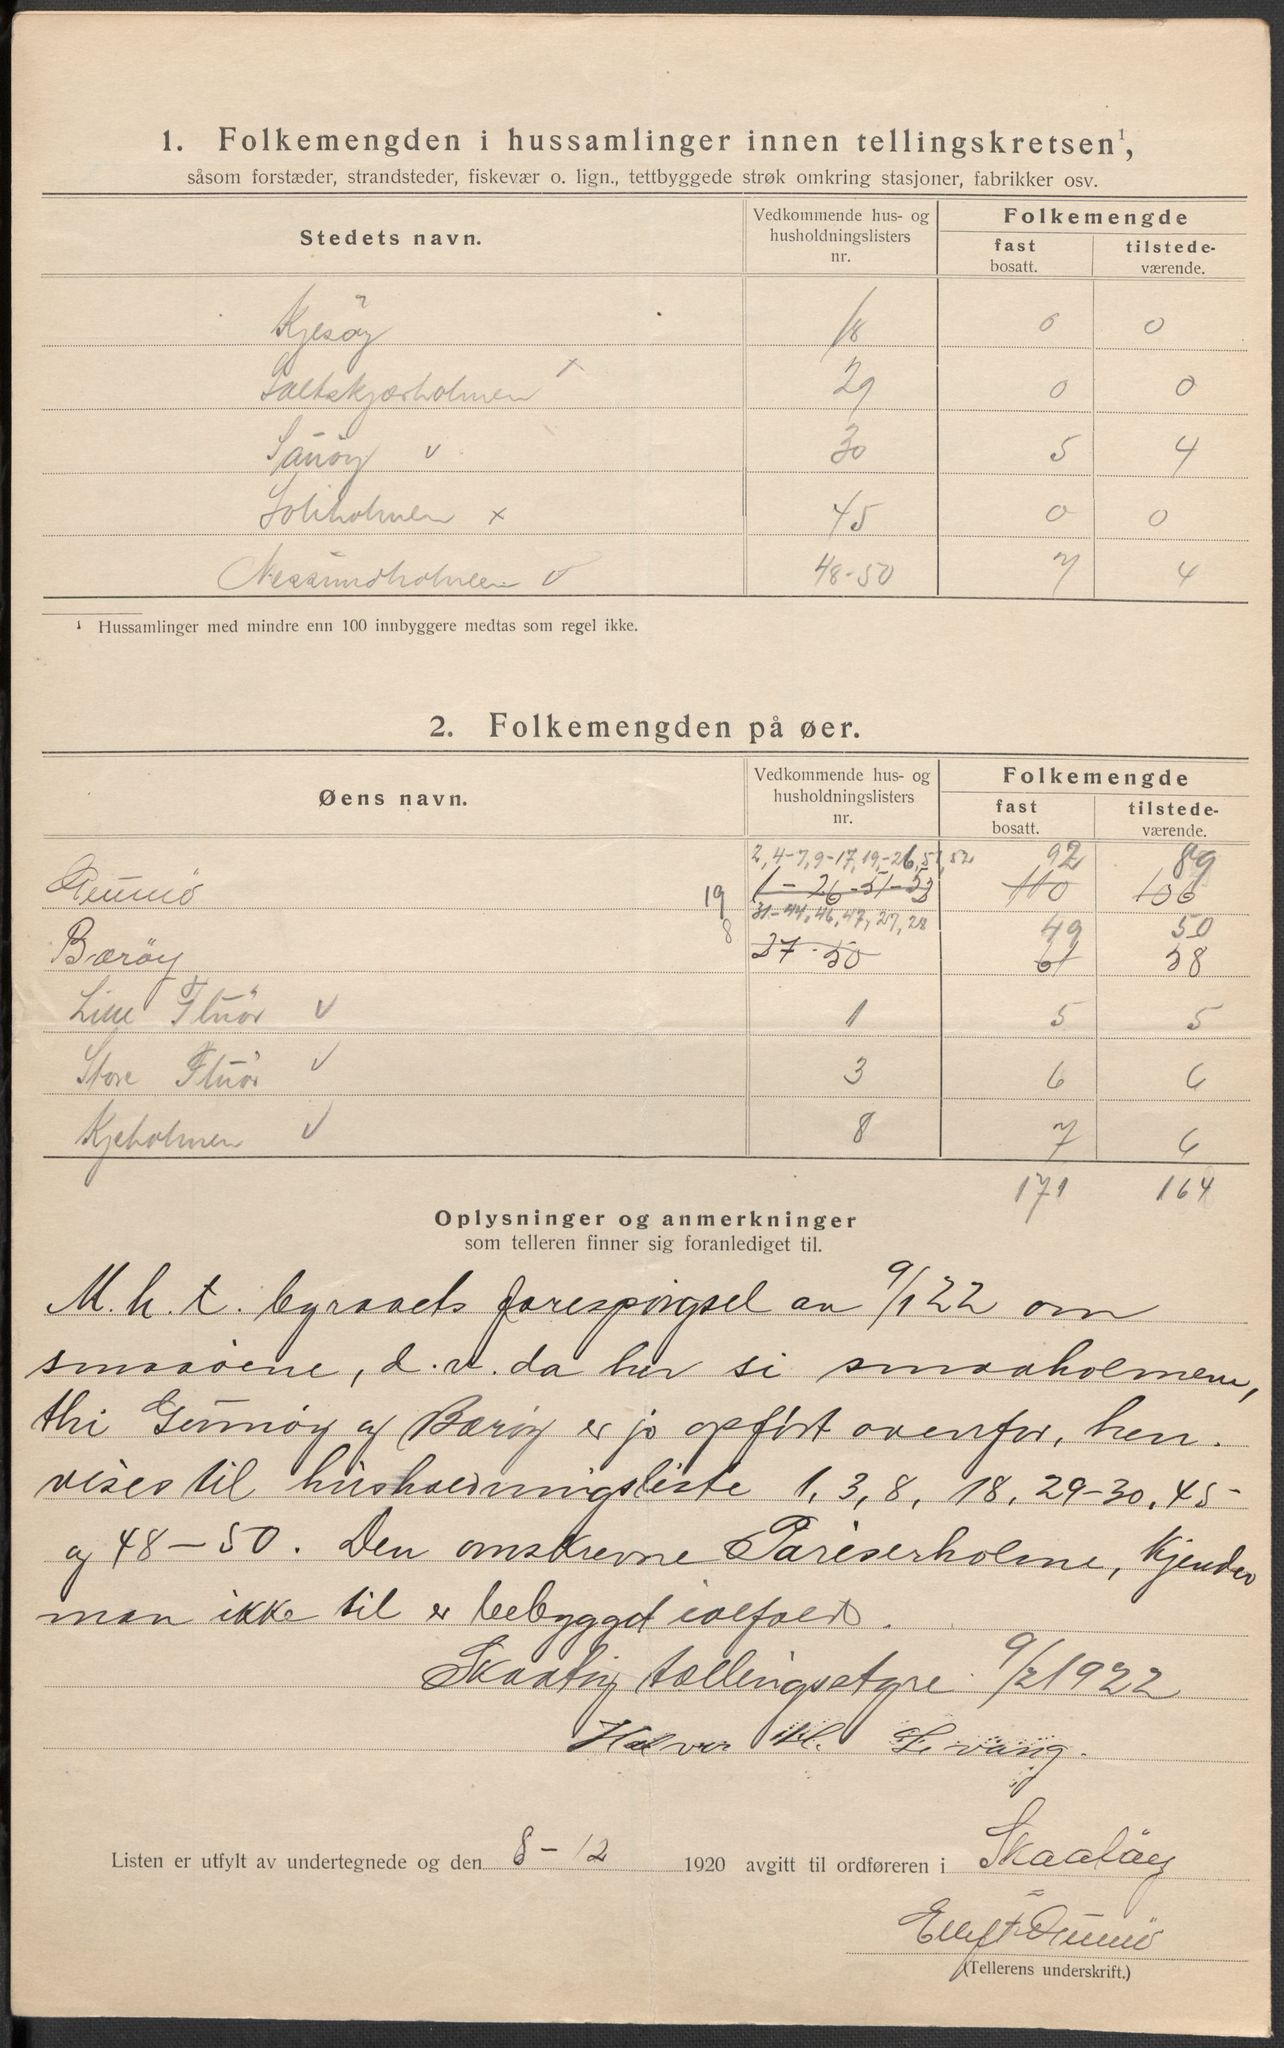 1. Folkemengden i hussamlinger innen tellingskretsen¹,
såsom forstæder, strandsteder, fiskevær o. lign., tettbyggede strøk omkring stasjoner, fabrikker osv.
Stedets navn. Vedkommende hus- og husholdningslisters nr. Folkemengde fast bosatt. tilstede-værende.
Kjesöy 18 0 0
Saltskjærholmen x 29 0 0
Sauöy v 30 5 4
x 45 0 0
Nessundholmen v 48-50 7 4
¹ Hussamlinger med mindre enn 100 innbyggere medtas som regel ikke.
2. Folkemengden på øer.
Øens navn. Vedkommende hus- og husholdningslisters nr. Folkemengde fast bosatt. tilstede-værende.
2, 4-7, 9-17, 19-26, 51, 52 92 89
Gumö 19 1-26-51-52 110 106
31-44, 46, 47, 27, 28 49 50
Bærøy 8 27-50 61 58
Lille Fluör v 1 5 5
Store Fluör v 3 6 6
Kjeholmen v 8 7 6
171 164
Oplysninger og anmerkninger
som telleren finner sig foranlediget til.
M. h. t. byraaets forespörgsel av 9/1 22 om
smaaöene, d. v. da her si smaaholmene,
thi Gumöy og Bæröy er jo opfört ovenfor, hen-
vises til husholdningsliste 1, 3, 8, 18, 29-30, 45-
og 48-50. Den omskrevne Pariserholme, kjender
man ikke til er bebygget ialfald.
Skaatöy tællingsstyre 9/2 1922
Halvor Levang.
Listen er utfylt av undertegnede og den 8-12 1920 avgitt til ordføreren i Skaatöy
Ellef Gumö
(Tellerens underskrift.)